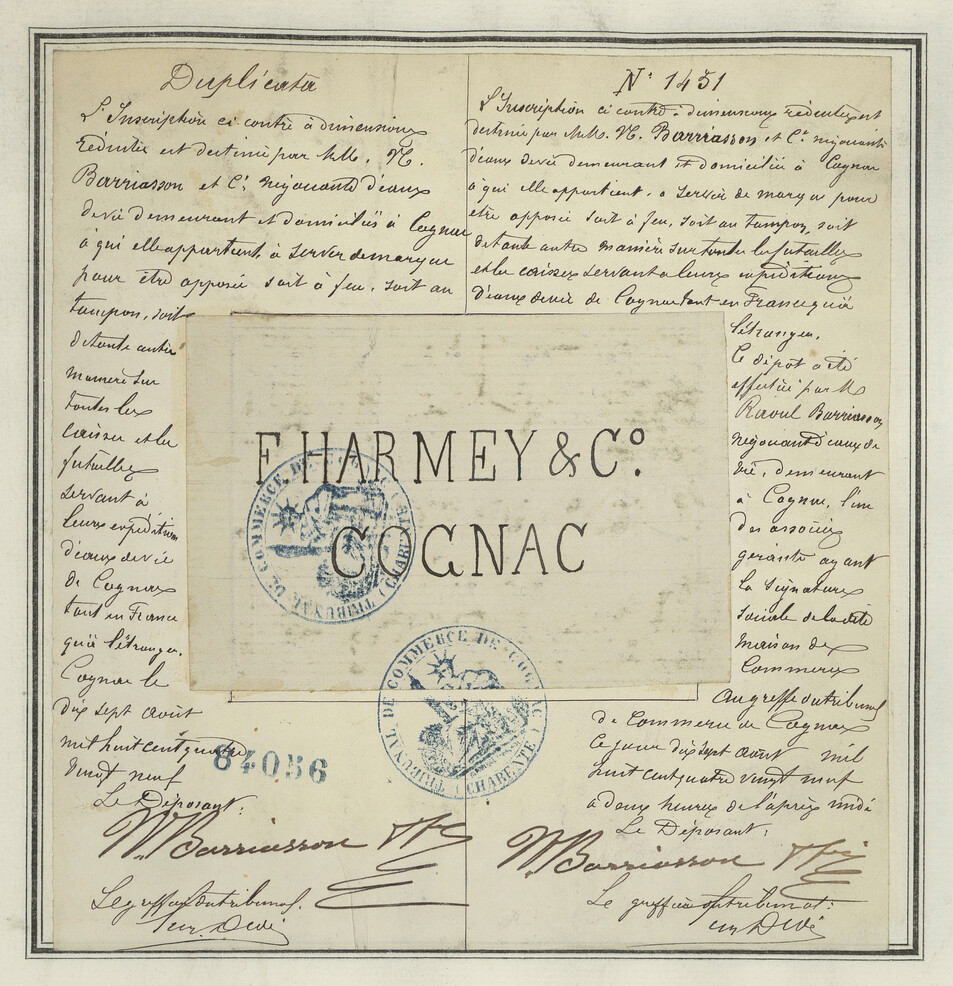 Duplicata
L'Inscription ci contre à dimensions
réduites est destinée par MM. N.
Barriasson et Cie. négociants d'eaux
de vie demeurant et domiciliés à Cognac
à qui elle appartient, à servir de marque
pour être apposée soit à feu, soit au
tampon, soit
de toute autre
manière sur
toutes les
caisses et les
futailles
servant à
leurs expéditions
d'eaux de vie
de Cognac
tant en France
qu'à l'étranger.
Cognac le
dix sept août
mil huit cent quatre
vingt neuf
Le Déposant:
N. Barriasson
Le greffier du tribunal.
N° 1451
L'Inscription ci contre à dimensions réduites est
destinée par MM. N. Barriasson et Cie négociants
d'eaux de vie demeurant et domiciliés à Cognac
à qui elle appartient, à servir de marque pour
être apposée soit à feu, soit au tampon, soit
de toute autre manière sur toutes les futailles
et les caisses servant à leurs expéditions
d'eaux de vie de Cognac tant en France qu'à
l'étranger.
Le dépôt a été
effectué par M
Raoul Barriasson
négociant d'eaux de
vie, demeurant
à Cognac, l'un
des associés
gérants ayant
la signature
sociale de la dite
maison de
Commerce
Au greffe du tribunal
de Commerce de Cognac
ce jour dix sept août mil
huit cent quatre vingt neuf
à deux heures de l'après midi
Le Déposant:
N. Barriasson
Le greffier du tribunal:
F. HARMEY & Cº.
COGNAC
TRIBUNAL DE COMMERCE DE COGNAC (CHARENTE)
TRIBUNAL DE COMMERCE DE COGNAC (CHARENTE)
84056